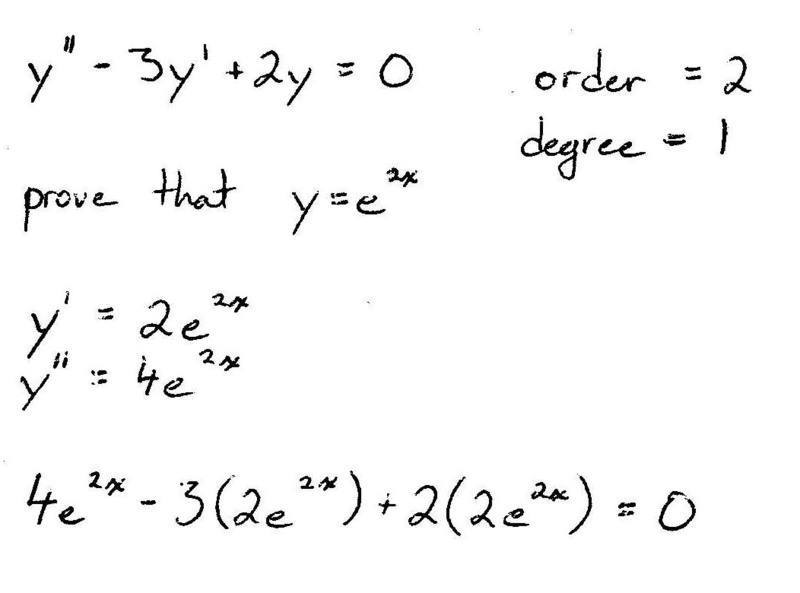 y'' - 3y' + 2y = 0
order = 2
degree = 1
prove that y = e^{2x}
y' = 2e^{2x}
y'' = 4e^{2x}
4e^{2x} - 3(2e^{2x}) + 2(2e^{2x}) = 0